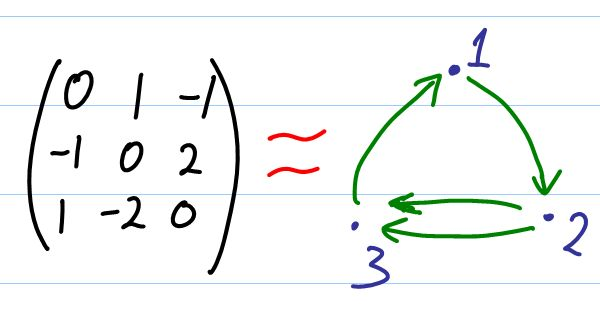 0 1 -1
-1 0 2
1 -2 0
≈
1
2
3